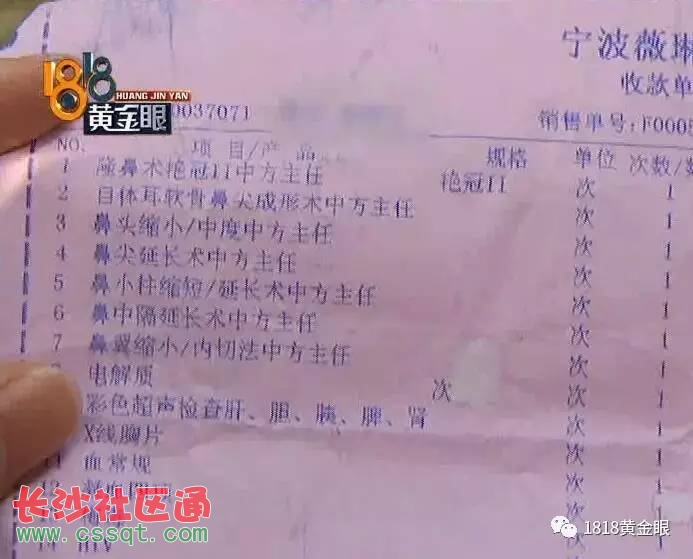 宁波薇琳
收款单
1818
HUANG JIN YAN
黄金眼
0037071
销售单号:F000
NO. 项目/产品 规格 单位 次数/
1 隆鼻术艳冠II中方主任 艳冠II 次 1
2 自体耳软骨鼻尖成形术中方主任 次 1
3 鼻头缩小/中度中方主任 次 1
4 鼻尖延长术中方主任 次 1
5 鼻小柱缩短/延长术中方主任 次 1
6 鼻中隔延长术中方主任 次 1
7 鼻翼缩小/内切法中方主任 次 1
电解质 次 1
彩色超声检查肝、胆、胰、脾、肾 次 次 1
X线胸片 次 1
血常规 次 1
次 1
次 1
14 HIV
长沙社区通
www.cssqt.com
1818黄金眼